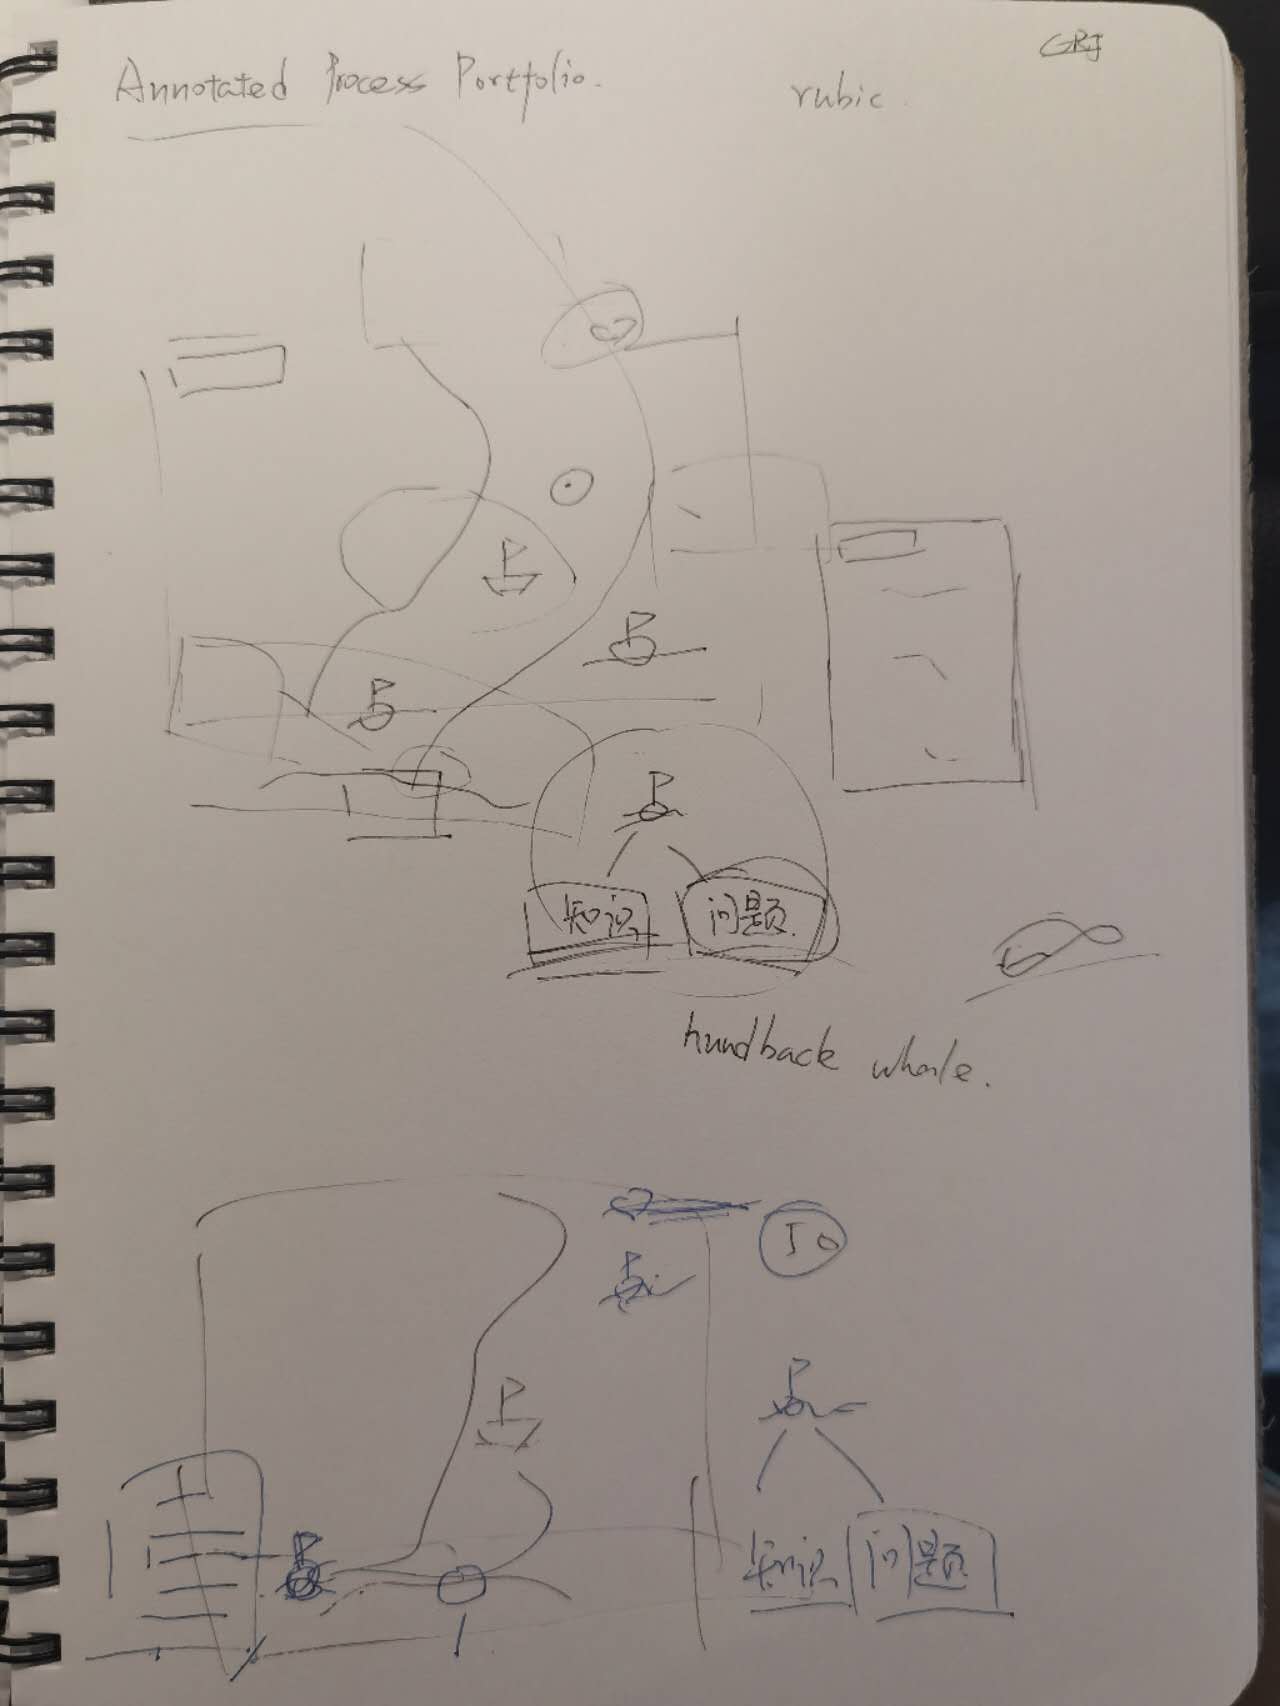 GRJ
Annotated Process Portfolio.
rubic.
知识 问题.
hundback whale.
知识 问题